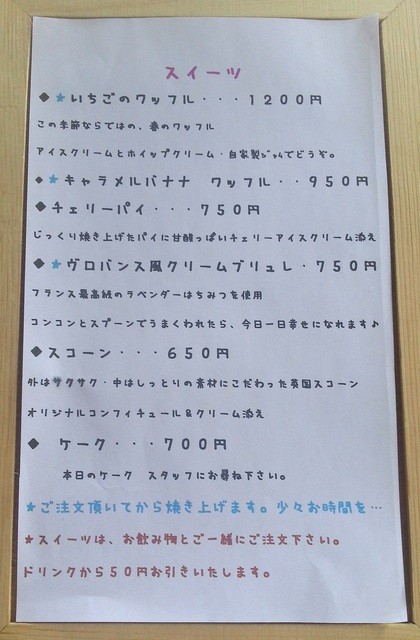 スイーツ
◆★いちごのワッフル・・・１２００円
この季節ならではの、春のワッフル
アイスクリームとホイップクリーム・自家製ジャムでどうぞ。
◆★キャラメルバナナ　ワッフル・・９５０円
◆チェリーパイ・・・７５０円
じっくり焼き上げたパイに甘酸っぱいチェリーアイスクリーム添え
◆★ヴロバンス風クリームブリュレ・７５０円
フランス最高級のラベンダーはちみつを使用
コンコンとスプーンでうまくわれたら、今日一日幸せになれます♪
◆スコーン・・・６５０円
外はサクサク・中はしっとりの素材にこだわった英国スコーン
オリジナルコンフィチュール＆クリーム添え
◆　ケーク・・・７００円
本日のケーク　スタッフにお尋ね下さい。
★ご注文頂いてから焼き上げます。少々お時間を…
★スイーツは、お飲み物とご一緒にご注文下さい。
ドリンクから５０円お引きいたします。